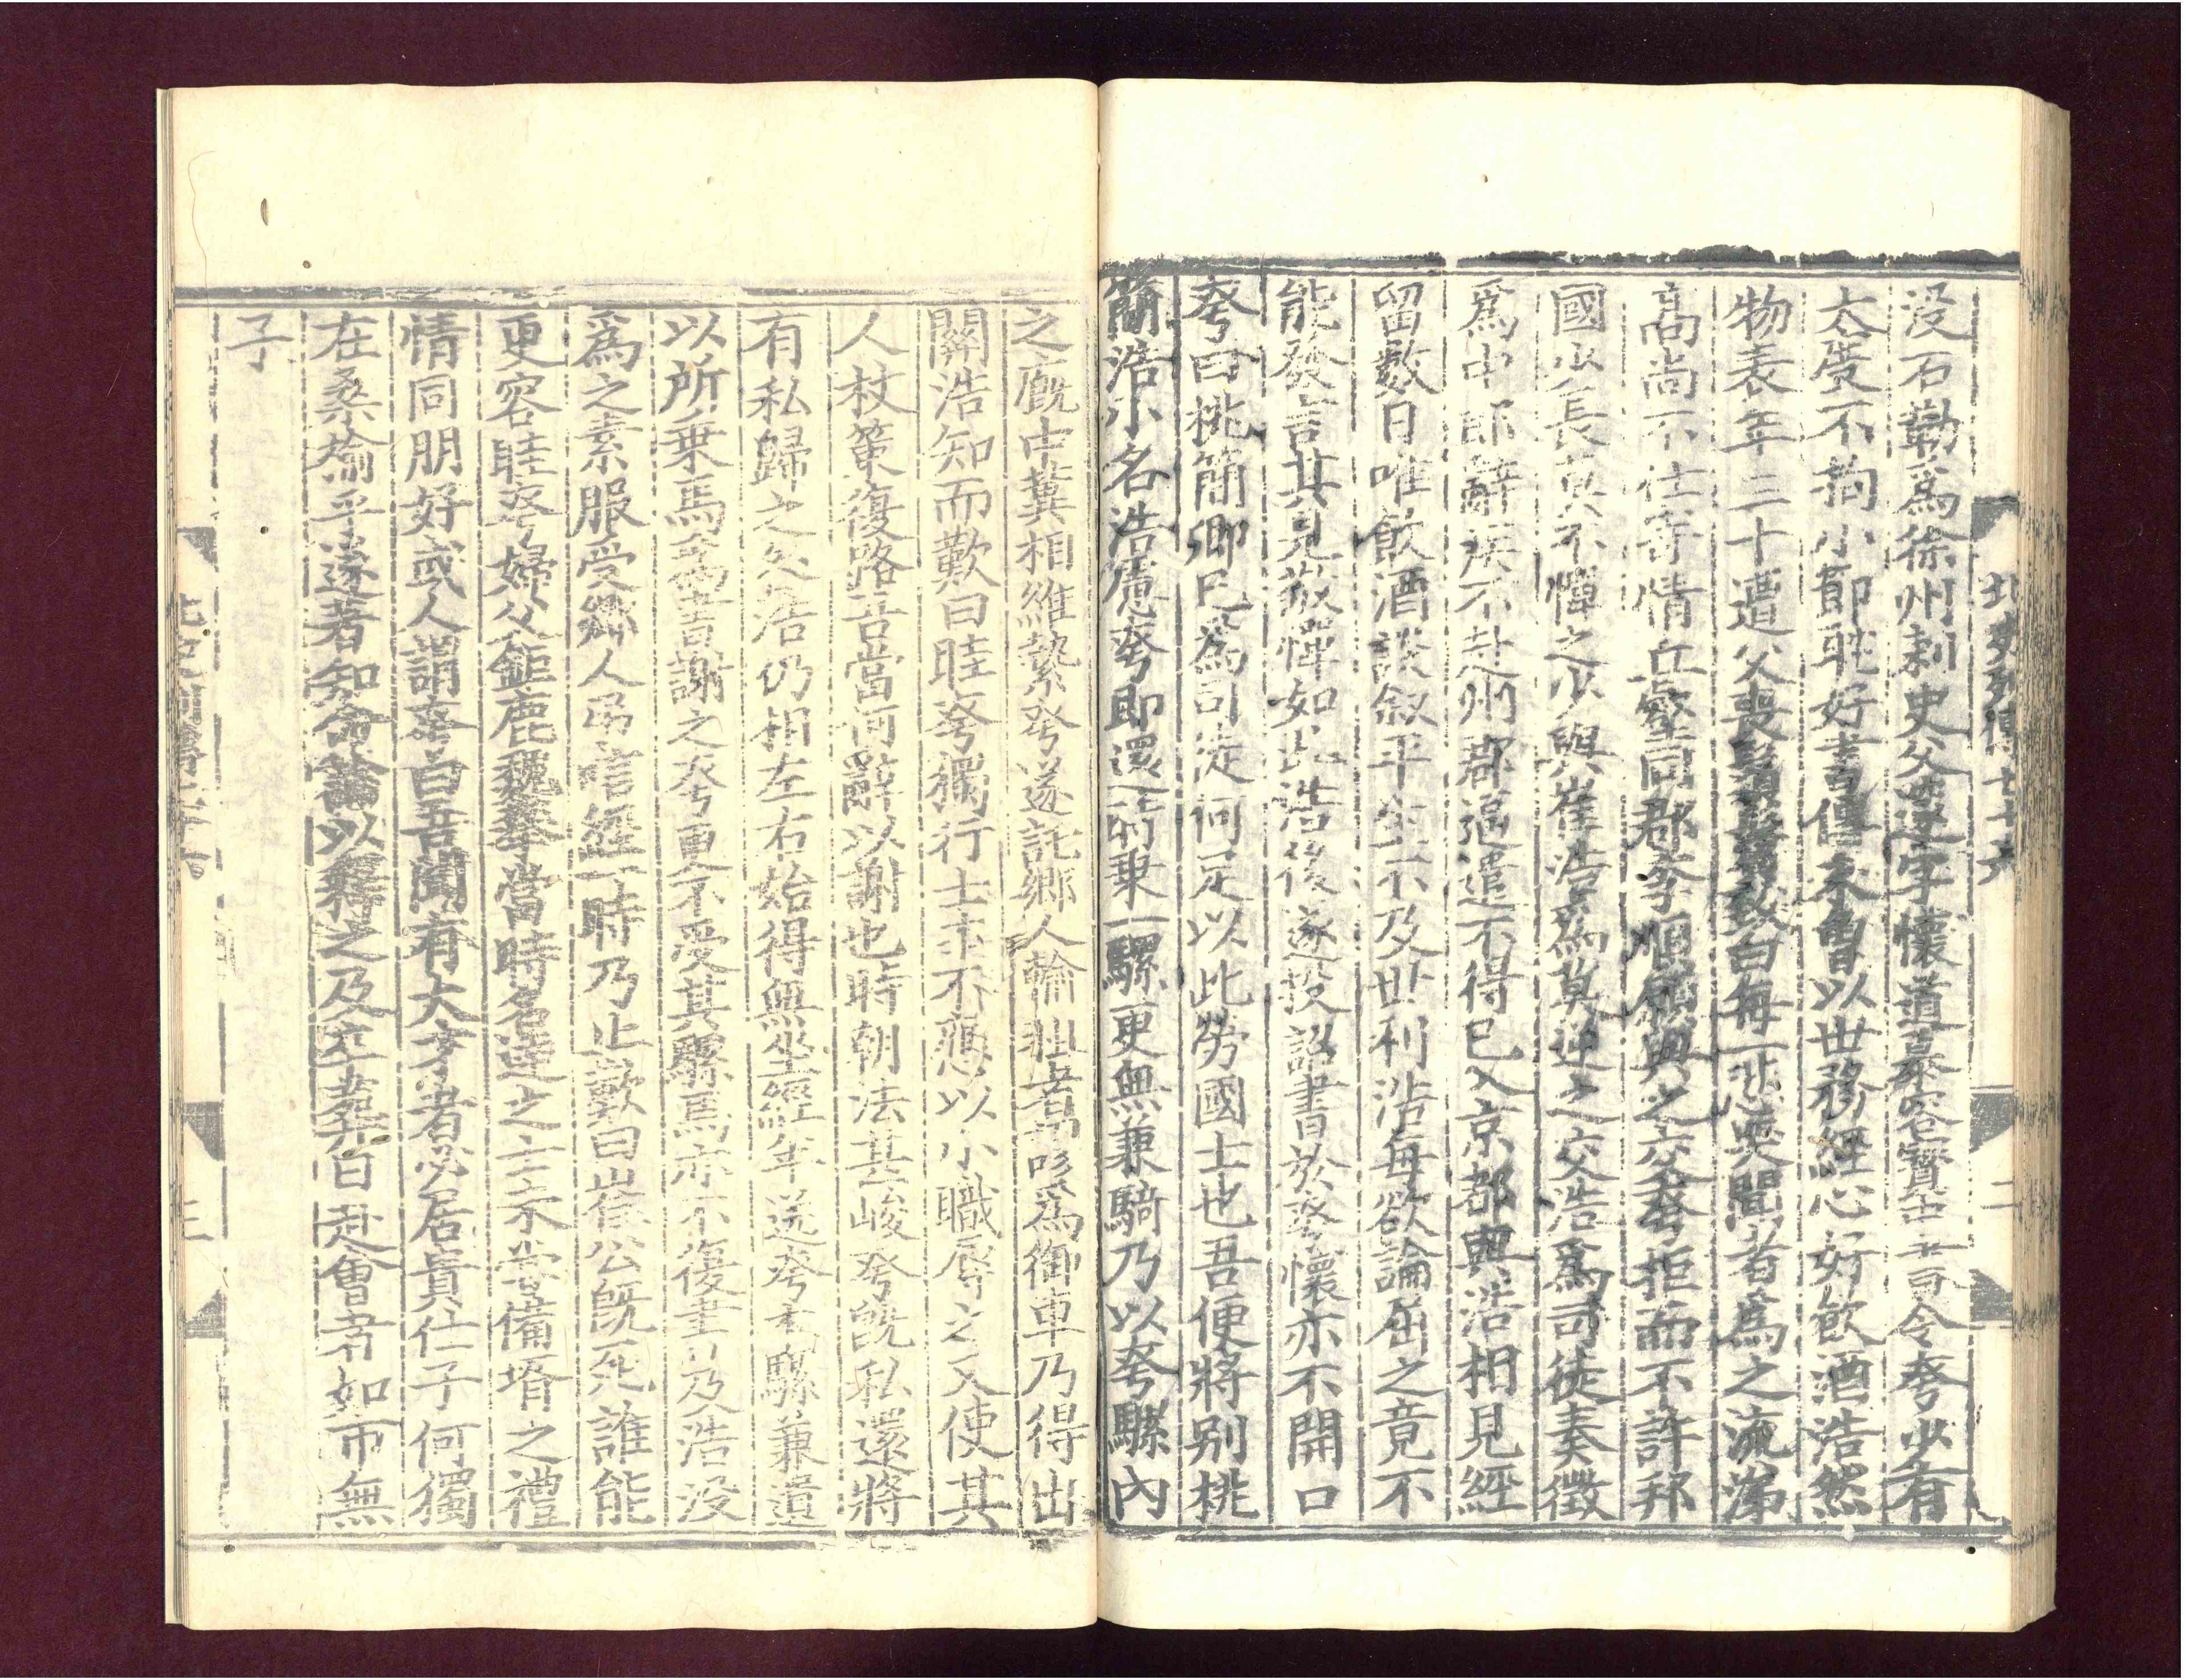 北史列傳七十六
二
没石勒爲徐州刺史父邃字懷道慕容寶中書令夸少有
大度不拘小節耽好書傳未曾以世務經心好飲酒浩然
物表年三十遭父喪鬚鬢致白每一悲哭聞者爲之流涕
高尚不仕寄情丘壑同郡李順願與之交夸拒而不許邦
國少長莫不憚之少與崔浩爲莫逆之交浩爲司徒奏徵
爲中郎辭疾不赴州郡逼遣不得已入京都與浩相見經
留數日唯飲酒談叙平生不及世利浩每欲論屈之竟不
能發言其見敬憚如此浩後遂投詔書於夸懷亦不開口
夸曰桃簡卿已爲司徒何足以此勞國士也吾便將别桃
簡浩小名浩慮夸即還時乗一騾更無兼騎乃以夸騾内
之廐中冀相維縶夸遂託鄉人輸租者謬爲御車乃得出
關浩知而歎曰眭夸獨行士本不應以小職辱之又使其
人杖策復路吾當何辭以謝也時朝法甚峻夸旣私還將
有私歸之咎浩仍相左右始得無坐經年送夸本騾兼遺
以所乗馬爲書謝之夸更不受其騾馬亦不復書及浩没
爲之素服受鄉人弔唁經一時乃止歎曰崔公旣死誰能
更容眭夸婦父鉅鹿魏攀當時名逹之士未嘗備壻之禮
情同朋好或人謂夸曰吾聞有大才者必居貴仕子何獨
在桑榆乎遂著知命論以釋之及卒葬日赴會者如市無
子
三